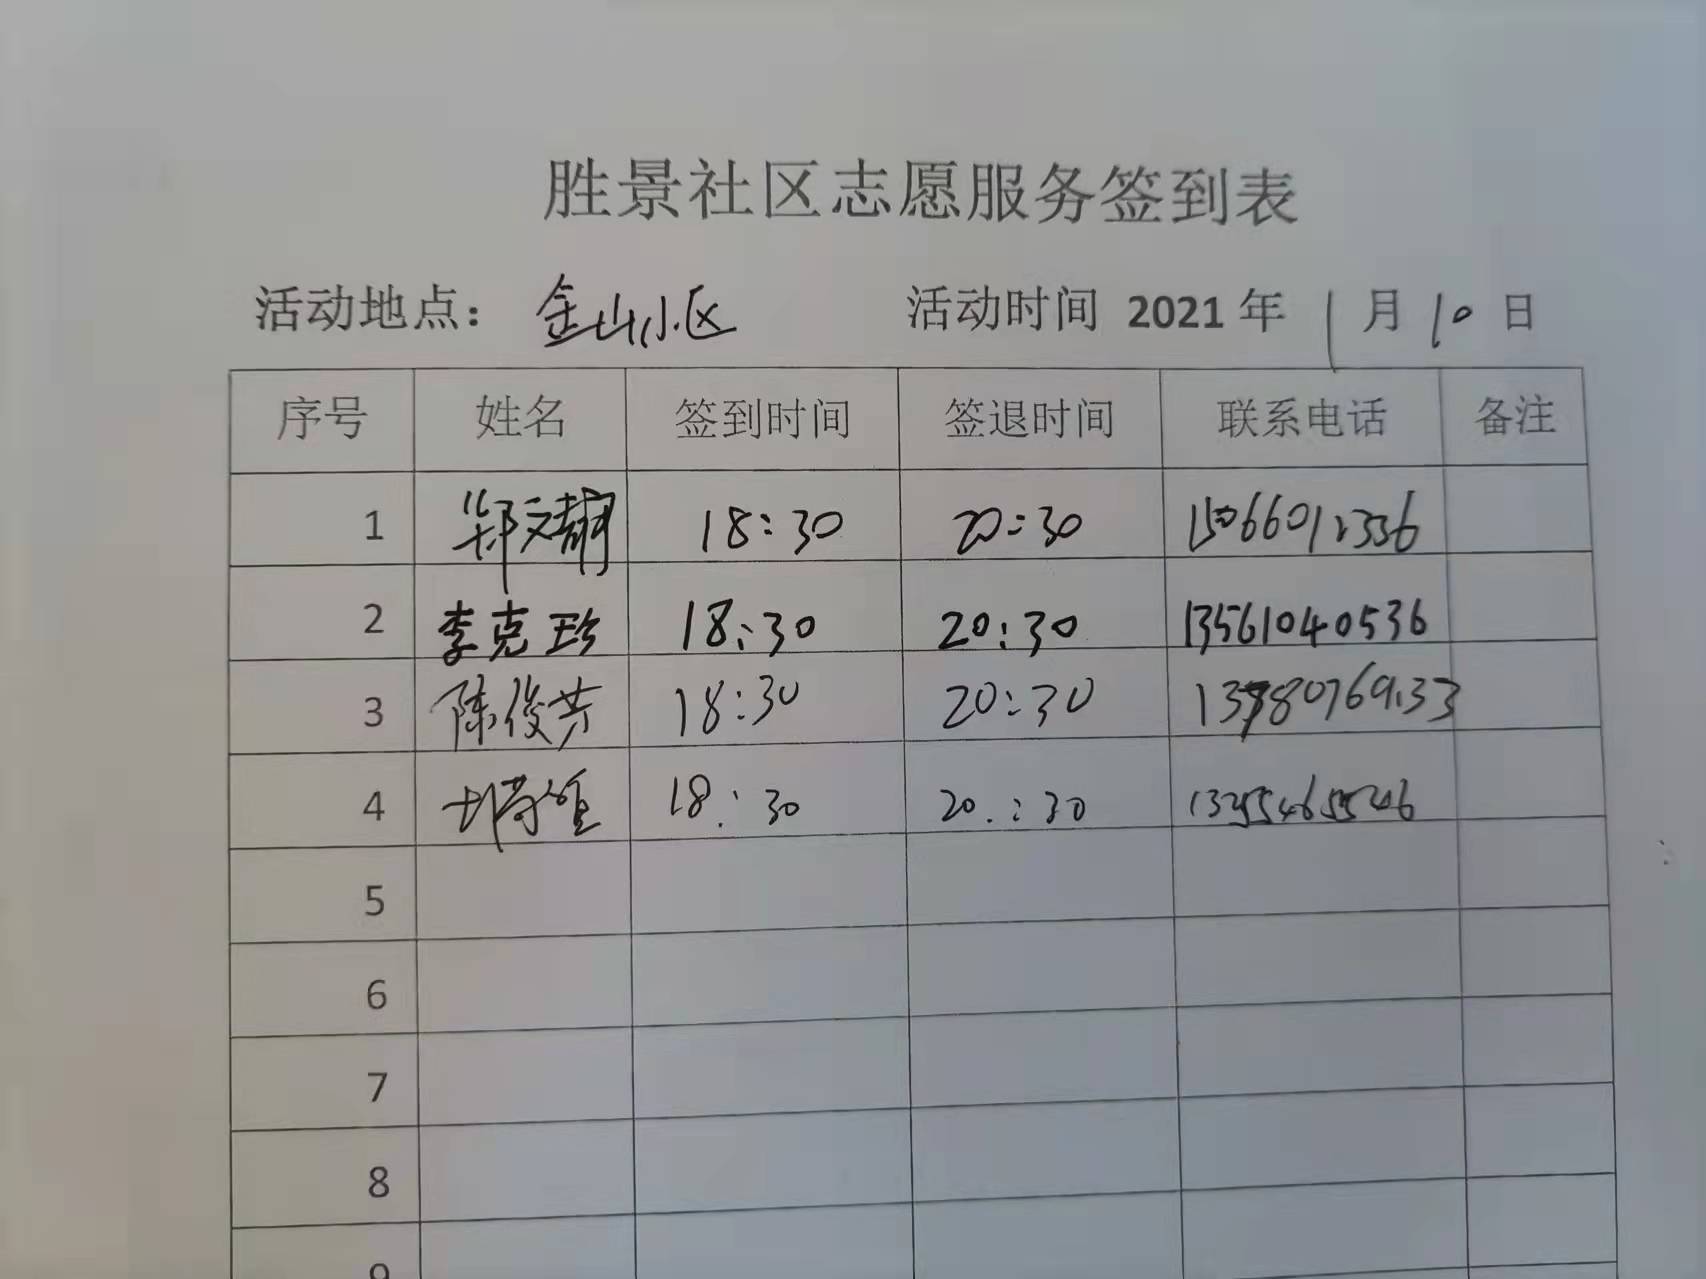 胜景社区志愿服务签到表
活动地点：金山小区 活动时间 2021 年 1 月 10 日
序号 姓名 签到时间 签退时间 联系电话 备注
1 郑文 18:30 20:30
2 李克珍 18:30 20:30 13561040536
3 陈俊芳 18:30 20:30
4 18:30 20:30
5
6
7
8
9